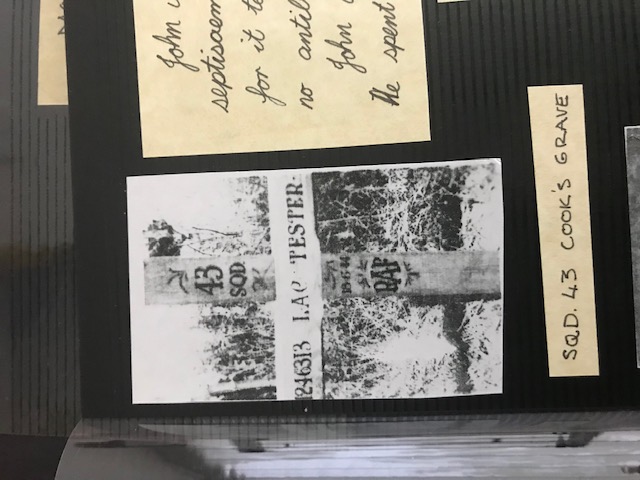 43
SQD.
1246313 LAC TESTER
18·6·44
RAF
John
septisaem
for it
no antib
John
He spent
SQD. 43 COOK'S GRAVE